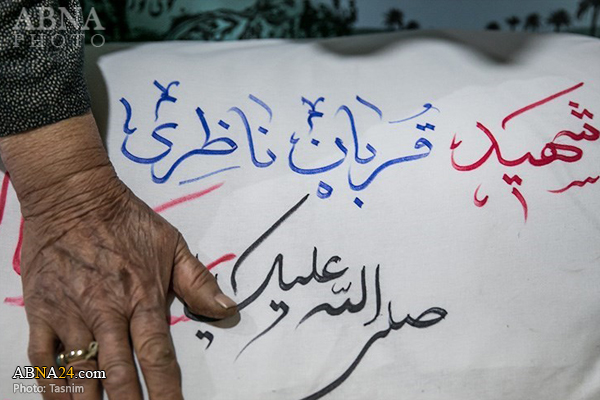 ABNA
PHOTO
شهید قربان ناظری
صلی الله علیک
ABNA24.com
Photo: Tasnim